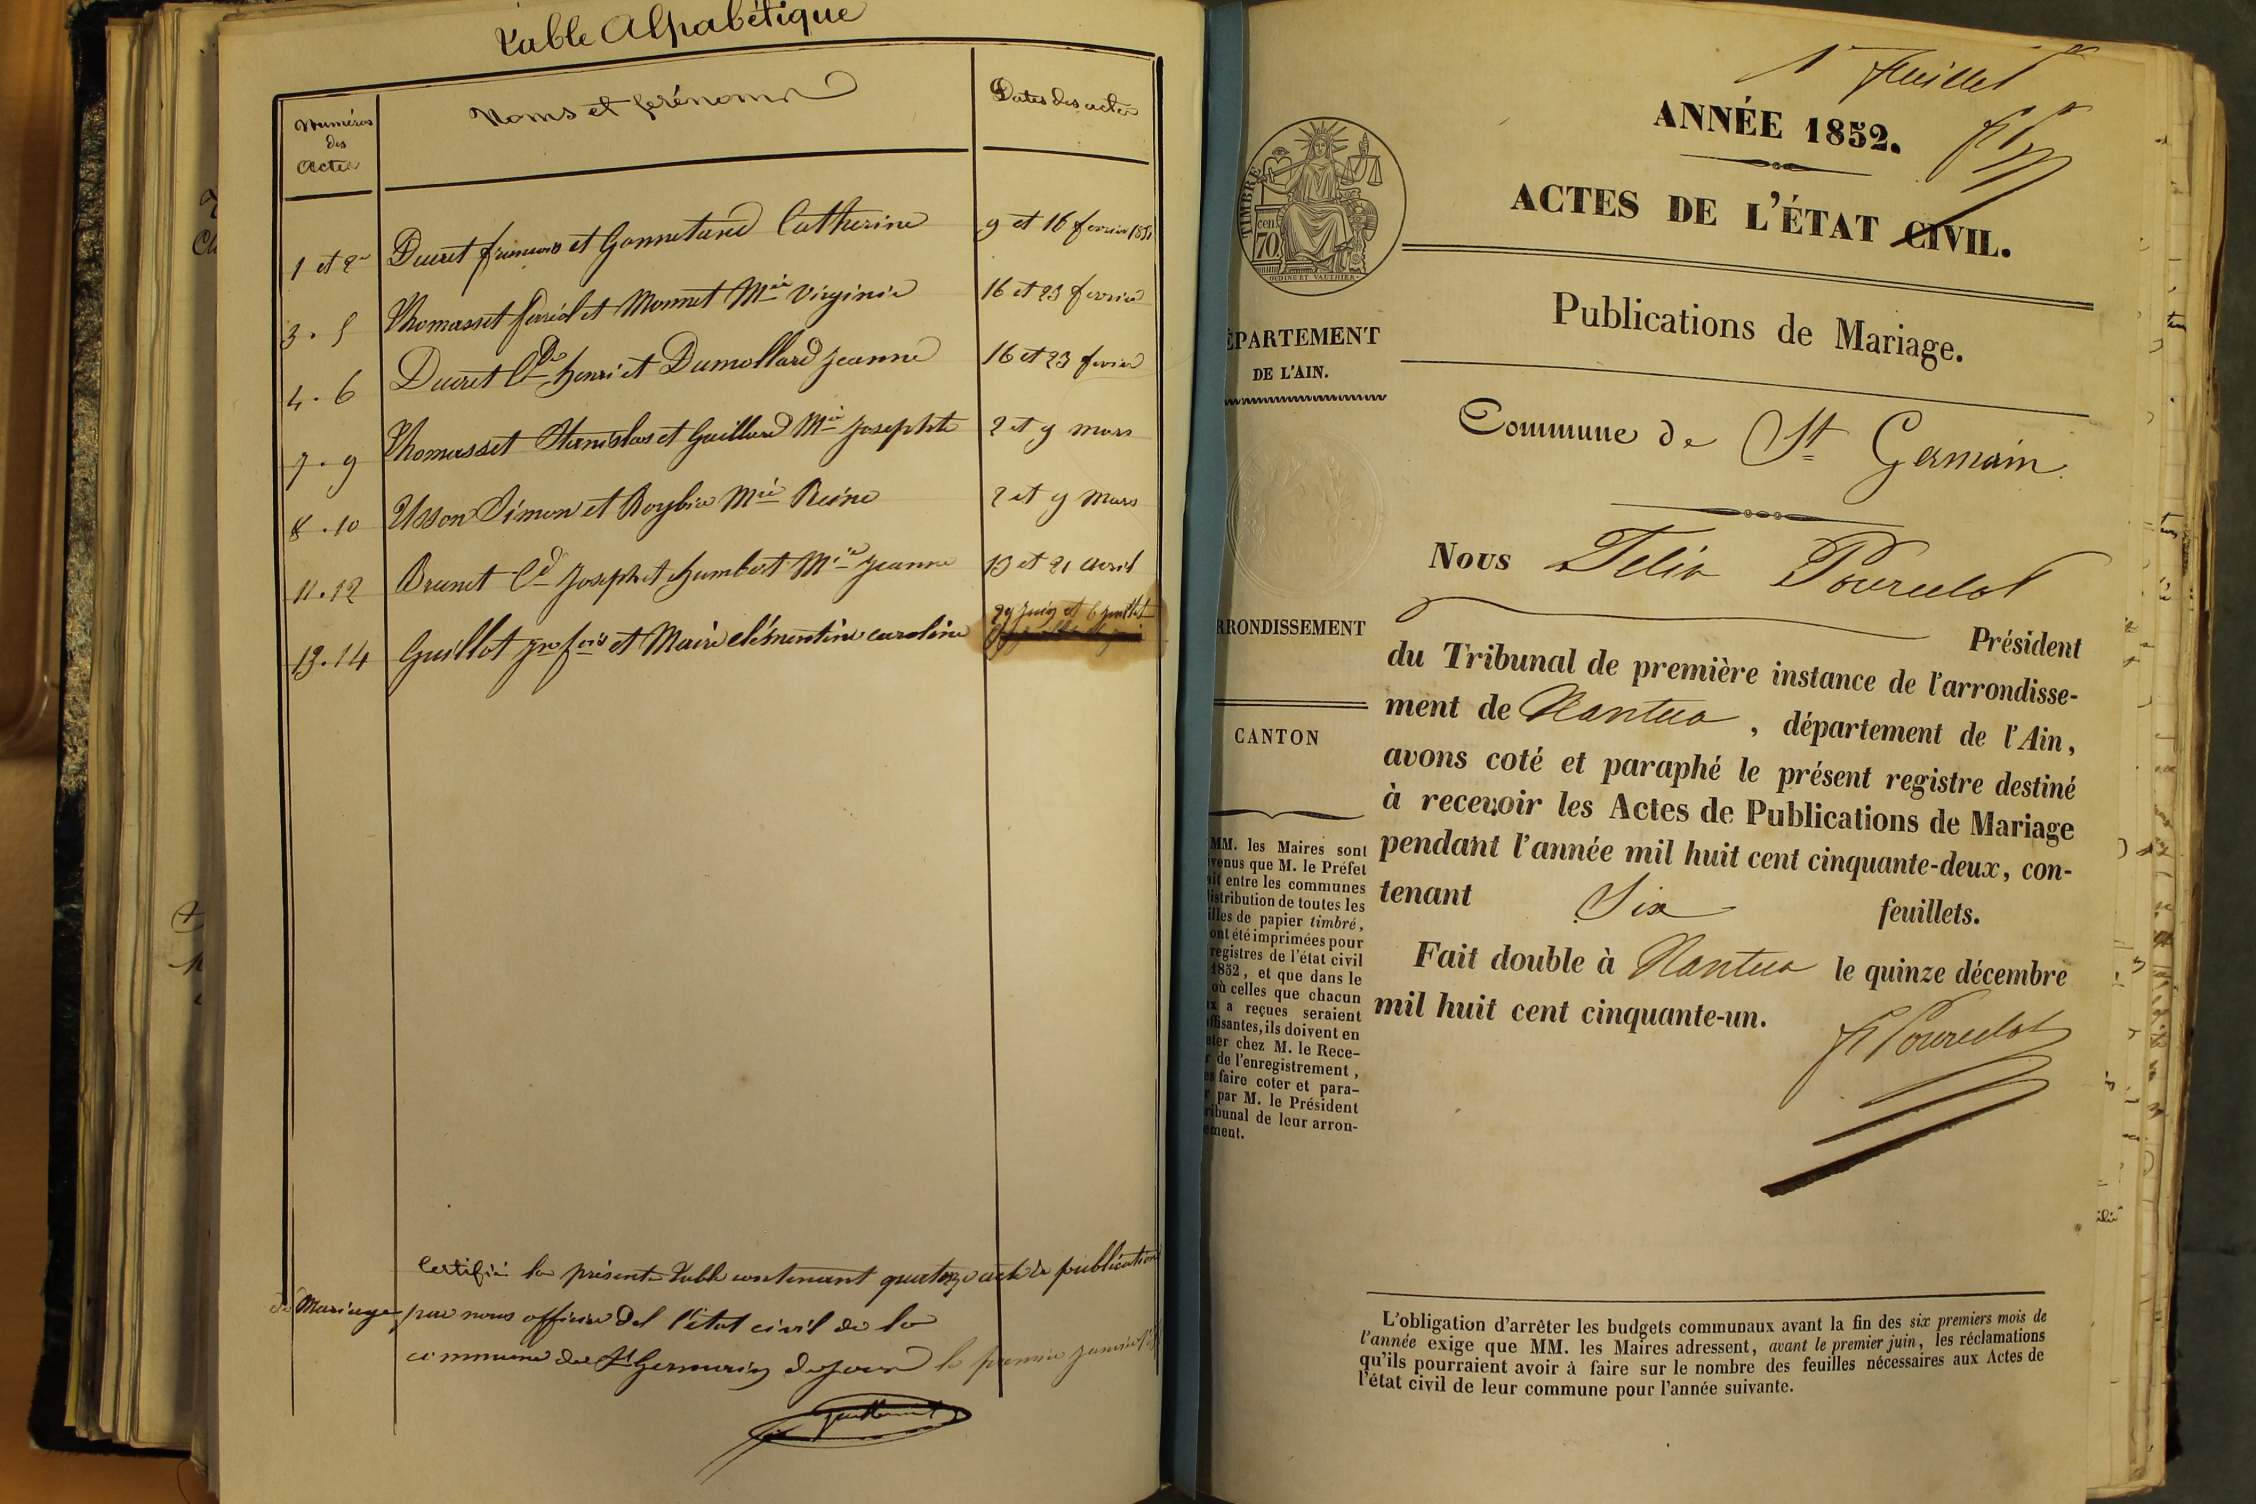 Table Alphabétique
Numéros des Actes
Noms et prénoms
Dates des actes
1 et 2 Ducret françois et Gonnetand Catherine 9 et 16 fevrier 1851
3 . 5 Thomasset ferréol et Monnet Mie Virginie 16 et 23 fevrier
4 . 6 Ducret Cde henri et Dumollard jeanne 16 et 23 fevrier
7 . 9 Thomasset Stanislas et Guillard Mie josephte 2 et 9 mars
8 . 10 Usson Simon et Roybin Mie Reine 2 et 9 Mars
11 . 12 Brunet Cd joseph et humbert Mie jeanne 13 et 21 avril
13 . 14 Guillot jn fois et Maire clémentine caroline 29 juin et 6 juillet
Certifié la présente table contenant quatorze acte de publication
de Mariage, par nous officier del l'état civil de la
commune de St Germain de joux le premier janvier
1r feuillet
ANNÉE 1852.
ACTES DE L'ÉTAT CIVIL.
TIMBRE
cen. 70.
OUDINÉ ET VAUTHIER
Publications de Mariage.
ÉPARTEMENT
DE L'AIN.
Commune de St Germain
Nous Felix Pourcelot
Président
RRONDISSEMENT
du Tribunal de première instance de l'arrondisse-
ment de Nantua, département de l'Ain,
CANTON
avons coté et paraphé le présent registre destiné
à recevoir les Actes de Publications de Mariage
pendant l'année mil huit cent cinquante-deux, con-
tenant Six feuillets.
Fait double à Nantua le quinze décembre
mil huit cent cinquante-un.
f Pourcelot
MM. les Maires sont
venus que M. le Préfet
ait entre les communes
distribution de toutes les
illes de papier timbré,
ont été imprimées pour
registres de l'état civil
1852, et que dans le
où celles que chacun
ux a reçues seraient
ffisantes, ils doivent en
eter chez M. le Rece-
r de l'enregistrement,
es faire coter et para-
r par M. le Président
ribunal de leur arron-
ement.
L'obligation d'arrêter les budgets communaux avant la fin des six premiers mois de
l'année exige que MM. les Maires adressent, avant le premier juin, les réclamations
qu'ils pourraient avoir à faire sur le nombre des feuilles nécessaires aux Actes de
l'état civil de leur commune pour l'année suivante.